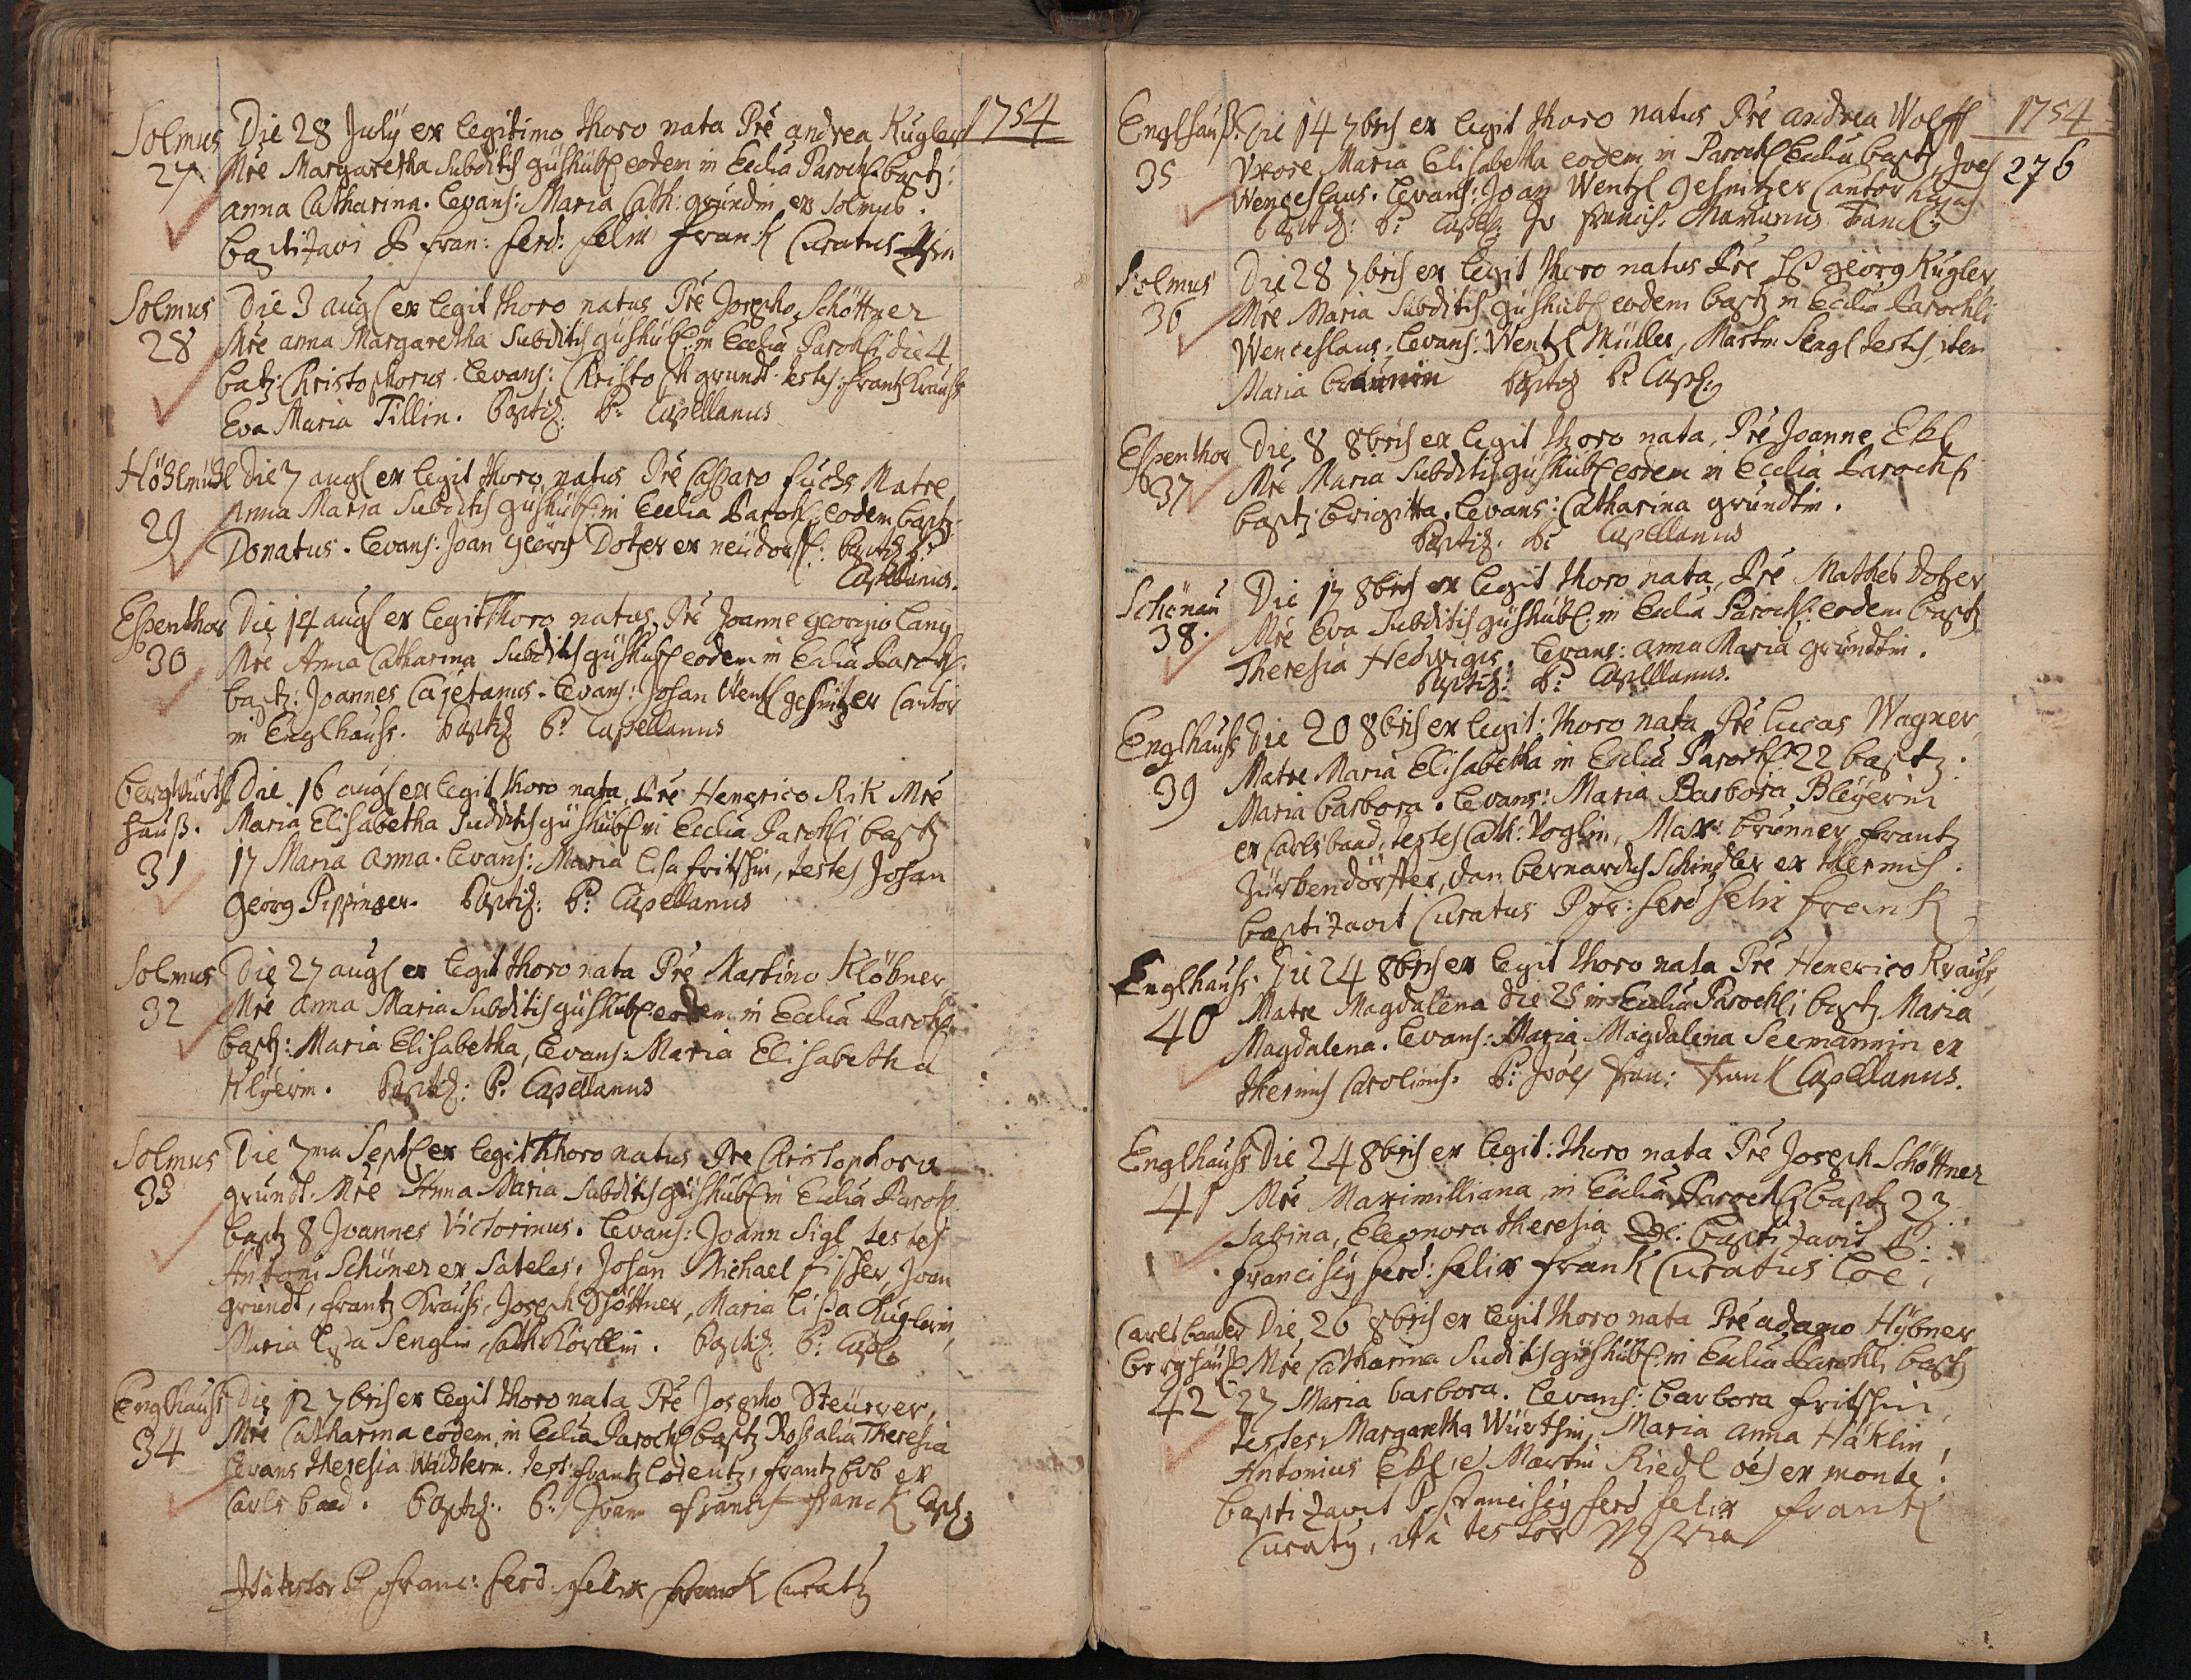 1754
Solmus Die 28 July ex legitimo thoro nata Prē andrea Kugler
27 Mrē Margaretha Subditis gushübl eodem in Ecclia Paroch. baptz:
anna Catharina. Levans: Maria Cath: grundin ex Solmus.
baptizavi P fran: ferd: felix frank Curatus
Solmus Die 3 augl ex legit thoro natus Prē Josepho Schöttner
28 Mrē anna Margaretha Subditis gushübl: in Ecclia Parochl: die 4
batz: Christophorus. Levans: Christoph grundt. testes: frantz Krauss
Eva Maria Tillin. baptiz: P: Capellanus
Höslmühl Die 7 augl ex legit thoro natus Prē Casparo fuchs Matre
29 Anna Maria Subditis gushübl: in Ecclia Parochl: eodem baptz:
Donatus. Levans: Joan georg Dotzer ex neudorff: baptiz P:
Capellanus.
Espenthor Die 14 augl ex legit Thoro natus, Prē Joanne georgio Lang
30 Mrē Anna Catharina Subditis gushubl eodem in Ecclia Parochl:
baptz: Joannes Cajetanus. Levans: Johan Wentzl geshützer Cantor
in Englhauss. baptiz P: Capellanus
bergwürths Die 16 augl ex legit thoro nata, Prē Henerico Rik Mrē
hauß. Maria Elisabetha Subditis gushübl in Ecclia Parochli baptz
31 17 Maria anna. Levans: Maria Lisa fritshin, testes Johan
georg Pippinger. baptiz: P: Capellanus
Solmus Die 27 augl ex legit thoro nata Prē Martino Klöbner
32 Mrē anna Maria Subditis gushübl eodem in Ecclia Parochl:
baptz: Maria Elisabetha, Levans: Maria Elisabetha
Klyerin. baptiz: P: Capellanus
Solmus Die 7ma Septl ex legit thoro natus Prē Christophoro
33 grundt. Mrē Anna Maria Subditis gushübl in Ecclia Parochl
baptz 8 Joannes Victorinus. Levans: Joann Sigl testes
Antoni Schöner ex Sateles, Johan Michael fisher, Joan
grundt, frantz Krauss, Joseph Schöttner, Maria Lisa Kuglerin,
Maria Lisa Senglin, Cath: baptiz: P: Capl:
Englhauss Die 12 7bris ex legit thoro nata Prē Josepho Steürer,
34 Mrē Catharina eodem in Ecclia Parochl baptz Rossalia Theresia
Levans Theresia Wächterin. test: frantz Lorentz, frantz Erb ex
Carls baad. baptiz: P: Joan francis franck Capl:
Ita testor P franc: ferd: felix frank Curatz
1754
276
Englhauß Die 14 7bris ex legit thoro natus Prē andrea Wolff
35 Uxore Maria Elisabetha eodem in Parochl Ecclia baptz, Joes
Wenceslaus. Levans: Joan Wentzl geshützer Cantor
baptiz: P: Capell: Jo francis. Franck:
Solmus Die 28 7bris ex legit thoro natus Prē georg Kugler
36 Mrē Maria Subditis gushübl eodem baptz in Ecclia Parochli
Wenceslaus. Levans: Wentzl Müller, Martin Sengl testes, item
Maria baptiz P: Capl:
Espenthor Die 8 8bris ex legit thoro nata, Prē Joanne Ekl
37 Mrē Maria Subditis gushübl eodem in Ecclia Parochl
baptz brigitta. Levans: Catharina grundtin.
baptiz. P: Capellanus
Schönau Die 17 8bris ex legit thoro nata, Prē Matheo Dotzer
38. Mrē Eva Subditis gushübl: in Ecclia Parochl: eodem baptz
Theresia Hedwigis. Levans: anna Maria grundtin.
baptiz: P: Capellanus.
Englhauss Die 20 8bris ex legit: thoro nata Prē Lucas Wagner,
39 Matre Maria Elisabetha in Ecclia Parochl 22 baptz:
Maria barbora. Levans: Maria Barbora Bleyerin
ex Carlsbaad, testes Cath: Voglin, Max: brünner, frantz
Zürbendörffer, Dan bernardus Schindler ex thermis.
baptizavit Curatus P fr: ferd felix frank
Englhauss. Die 24 8bris ex legit thoro nata Prē Henerico Krauss,
40 Matre Magdalena die 25 in Ecclia Parochli baptz Maria
Magdalena. Levans: Maria Magdalena Seemannin ex
thermis Carolinis. P: Joes Fran: Frank Capellanus.
Englhauss Die 24 8bris ex legit: thoro nata Prē Joseph Schöttner
41 Mrē Maximilliana in Ecclia Parochl baptz 27
Sabina, Eleonora theresia baptizavit P:
franciscy ferd: felix frank Curatus Loc:
Carlsbaader Die 26 8bris ex legit thoro nata Prē adamo Hübner
berghäusl Mrē Catharina Subditis gushübl: in Ecclia Parochli baptz
42 27 Maria barbora. Levans: barbora fritshin,
testes: Margaretha Würthin, Maria anna Häklin,
Antonius Ekl, e Martin Riedl oēs ex monte.
baptizavit P franciscy ferd felix frank
Curaty, ita testor